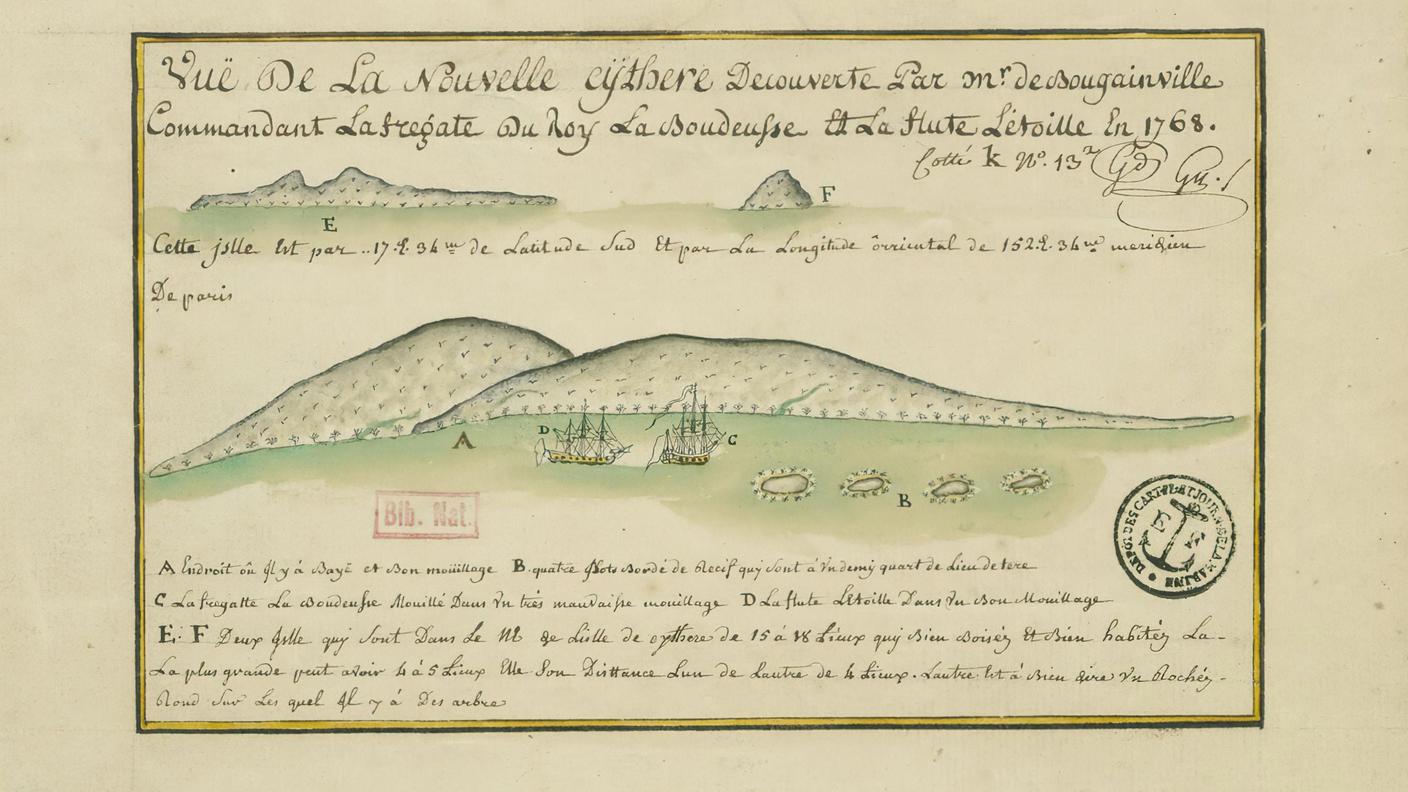 Vuë De La Nouvelle cÿthere Decouverte Par mr. de Bougainville
Commandant La fregate Du Roy La Boudeusse Et La flute Letoille En 1768.
Cotté k No. 13
E
F
Cette jslle Est par ..17.d. 34 m de Latitude Sud Et par La Longitude ôrriental de 152.d. 34 m meridien
De paris
A
D
C
B
Bib. Nat.
DÉPÔT DES CARTES ET JOUR. DE LA MARINE
A Endroit oû jl y á Baye et Bon moüillage B. quatre jlots Bordé de Recif quy sont á Vn demy quart de Lieu de tere
C La fregatte La Boudeusse Mouillé Dans Vn trés mauvaisse mouillage D La flute Letoille Dans Vn Bon Mouillage
E: F Deux jslle quy sont Dans Le de Lisle de cythere de 15 á 18 Lieux quy Bien Boiséz Et Bien habitéz La-
La plus grande peut avoir 4 á 5 Lieux Elle Son Disttance Lun de Lautre de 4 Lieux. Lautre Est á Bien dire Vn Rochéz-
Rond Sur Les quel jl y á Des arbre